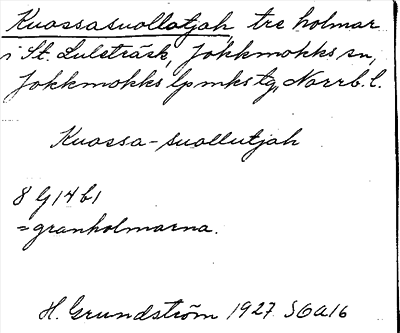 Kuossasuollotjah, tre holmar
i St. Luleträsk, Jokkmokks sn,
Jokkmokks lpmks tg, Norrb. l.
Kuossa-suollutjah
8 G 14 b 1
= granholmarna.
H. Grundström 1927 SOA 16